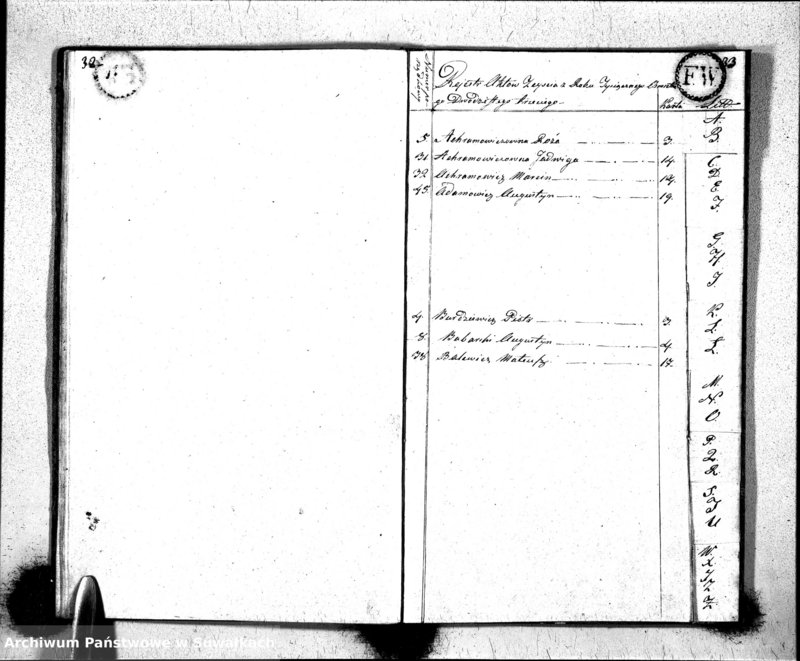 32
FW
33
Rejestr Aktów Zeyscia z Roku Tysiącznego Ośmset
go Dwudziestego trzeciego
Karta
Litt
5 Achramowiczowna Roża 3.
31 Achramowiczowna Jadwiga 14
32 Achramowicz Marcin 14.
45. Adamowicz Augustyn 19.
4. Burdziewicz Piotr 3.
8. Babarski Augustyn 4.
38 Balewicz Mateusz 17.
A.
B.
C.
D.
E.
F.
G.
H.
I.
K.
L.
Ł.
M.
N.
O.
P.
Q.
R.
S.
T.
U
W.
X.
Y.
Z.
Ż.
Archiwum Państwowe w Suwałkach